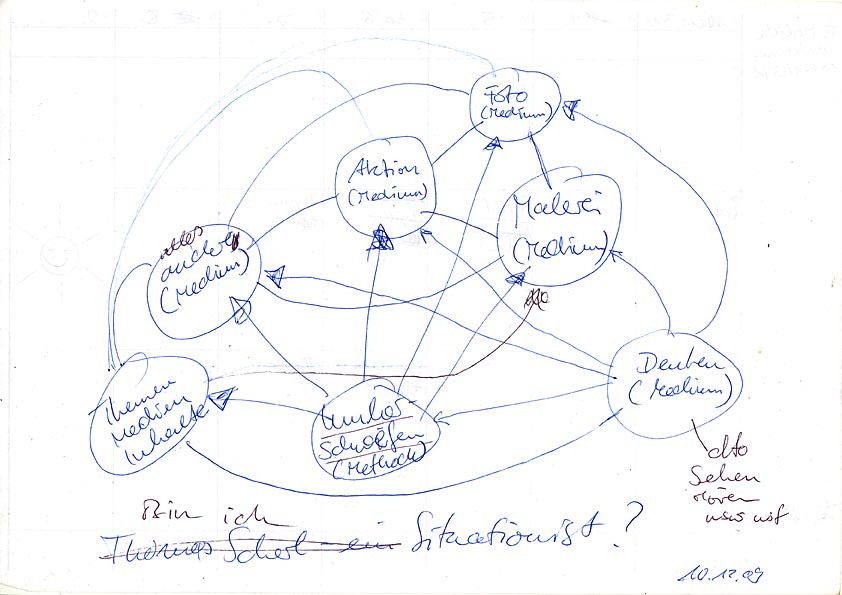 Foto
(Medium)
Aktion
(Medium)
Malerei
(Medium)
alles
andere
(Medium)
Denken
(Medium)
Themen
Medien
Inhalte
Schöpfen
(Methode)
dto
Sehen
Hören
usw usf
Bin ich
Thomas Scherl ein Situationist?
10.12.09